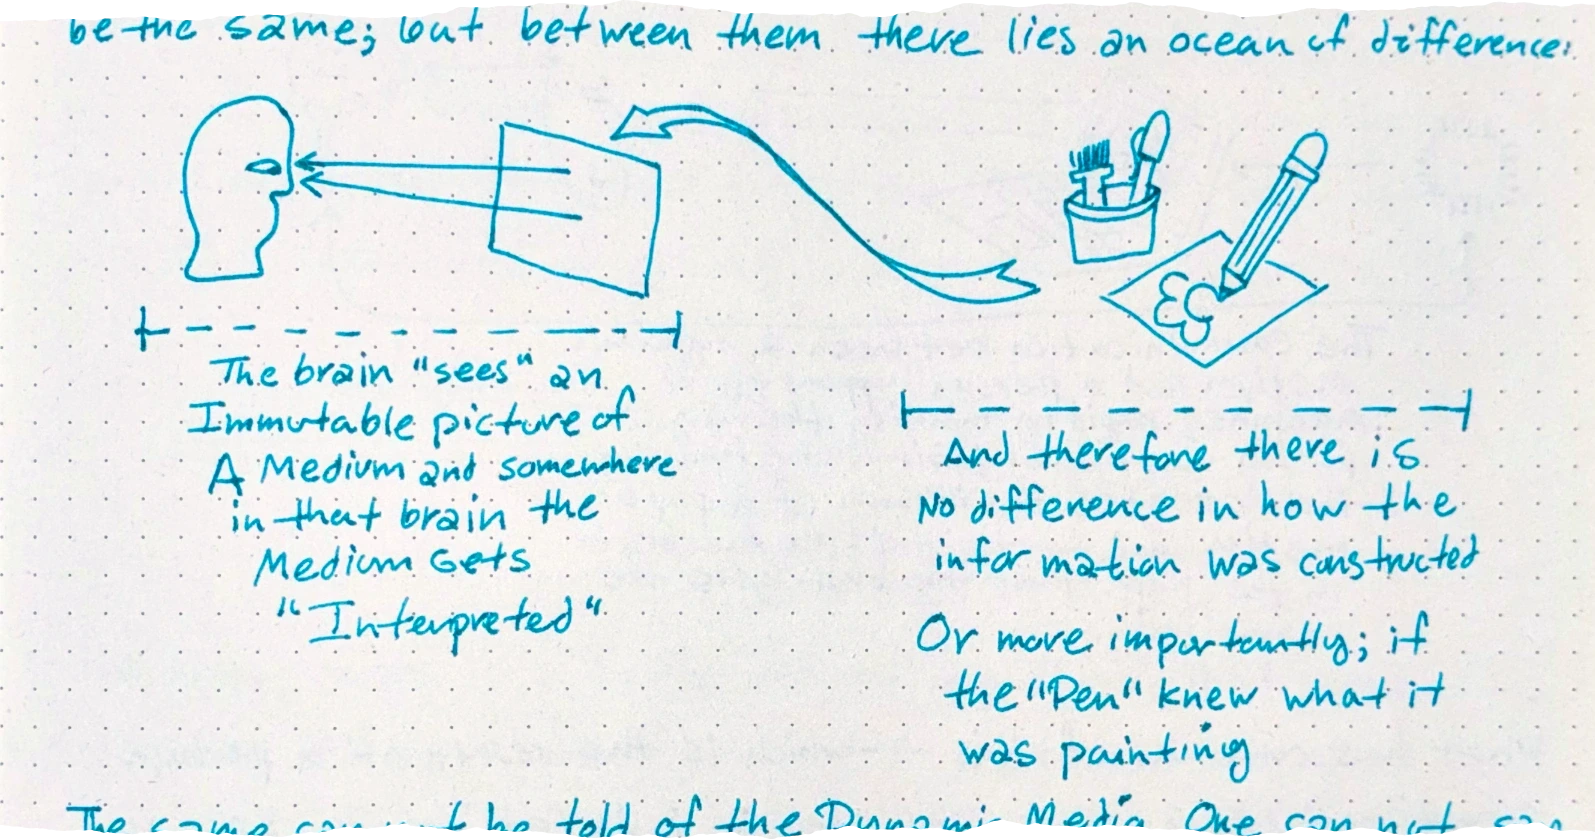 be the same; but between them there lies an ocean of difference:
The brain "sees" an
Immutable picture of
A Medium and somewhere
in that brain the
Medium Gets
"Interpreted"
And therefore there is
No difference in how the
information was constructed
Or more importantly; if
the "Pen" knew what it
was painting
The same can not be told of the Dynamic Media. One can not say